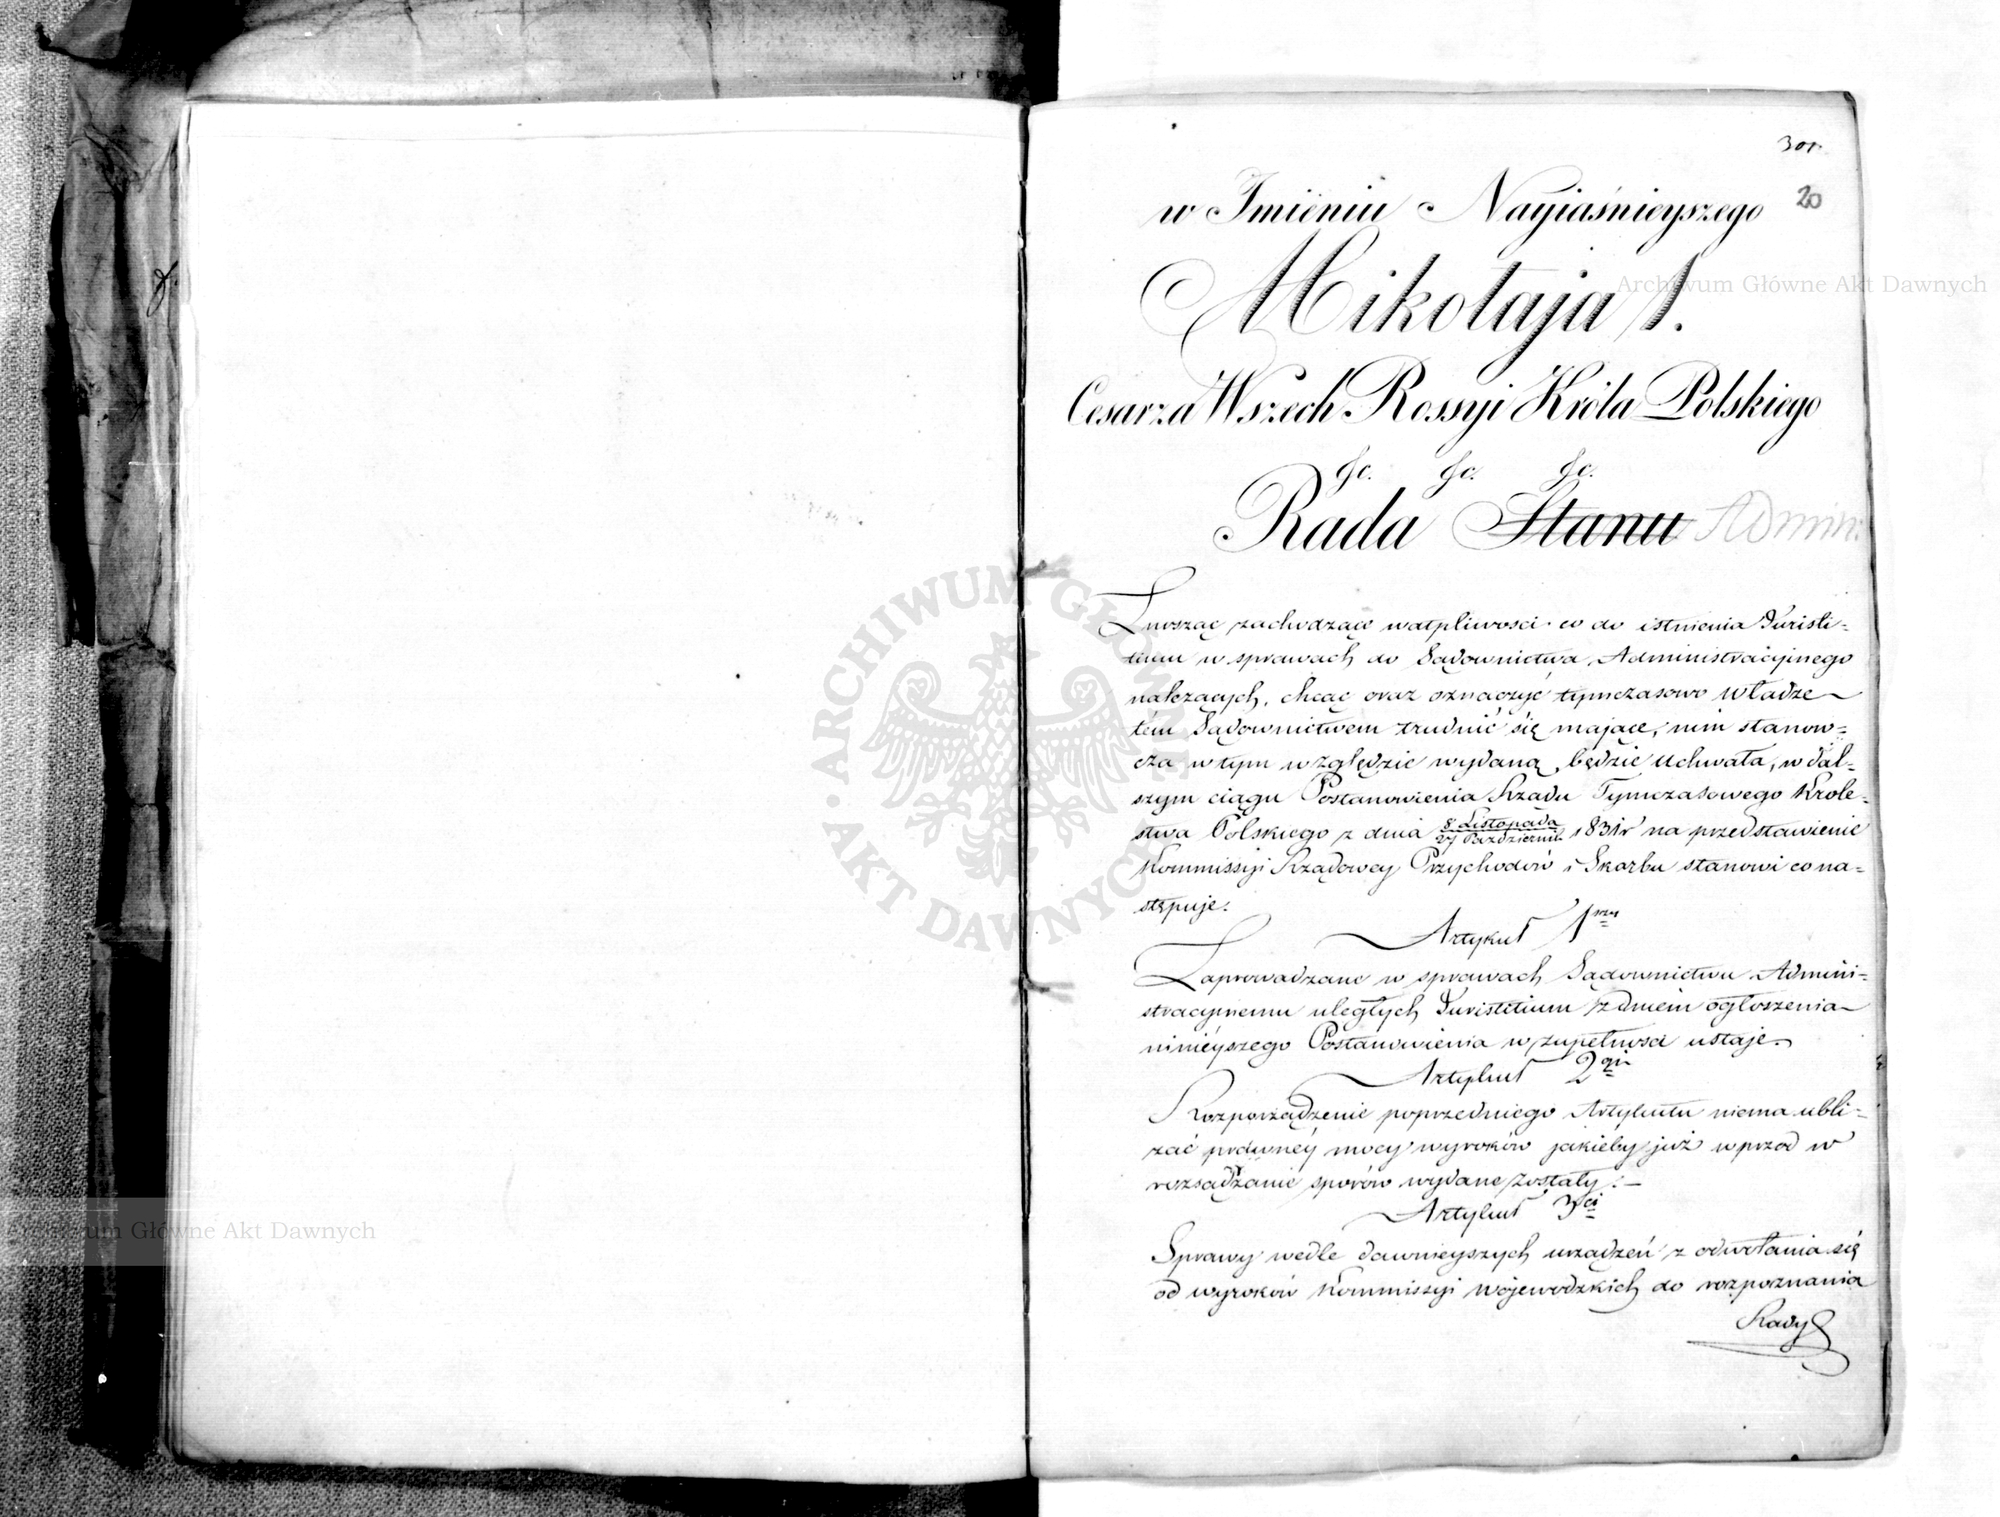 301.
20
w Imieniu Nayiaśnieyszego
Mikołaja I.
Cesarza Wszech Rossyi Króla Polskiego
&c. &c. &c.
Rada Stanu Admin:
Znosząc zachodzące wątpliwości co do istnienia Juristi-
tium w sprawach do Sądownictwa Administracyinego
należących, chcąc oraz oznaczyć tymczasowo władze
tém Sądownictwem trudnić się mające, nim stanow-
cza w tym względzie wydaną będzie uchwała, w dal-
szym ciągu Postanowienia Rządu Tymczasowego Króle-
stwa Polskiego z dnia 8 Listopada / 27 Październ. 1831 r na przedstawienie
Kommissyi Rządowey Przychodów i Skarbu stanowi co na-
stępuje.
Artykuł 1wszy
Zaprowadzane w sprawach Sądownictwu Admini-
stracyinemu uległych Juristitium z dniem ogłoszenia
ninieyszego Postanowienia w zupełności ustaje.
Artykuł 2gi
Rozporządzenie poprzedniego Artykułu niema ubli-
żać prawnéy mocy wyroków jakieby już wprzód w
rozsądzanie sporów wydane zostały.—
Artykuł 3ci
Sprawy wedle dawnieyszych urządzeń z odwołania się
od wyroków Kommissyi Wojewódzkich do rozpoznania
Rady
Archiwum Główne Akt Dawnych
ARCHIWUM GŁÓWNE
AKT DAWNYCH
Archiwum Główne Akt Dawnych